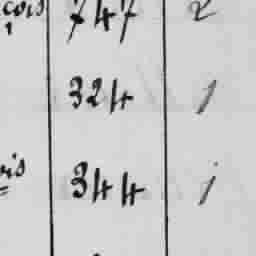 cois 747 2
324 1
ois 344 1